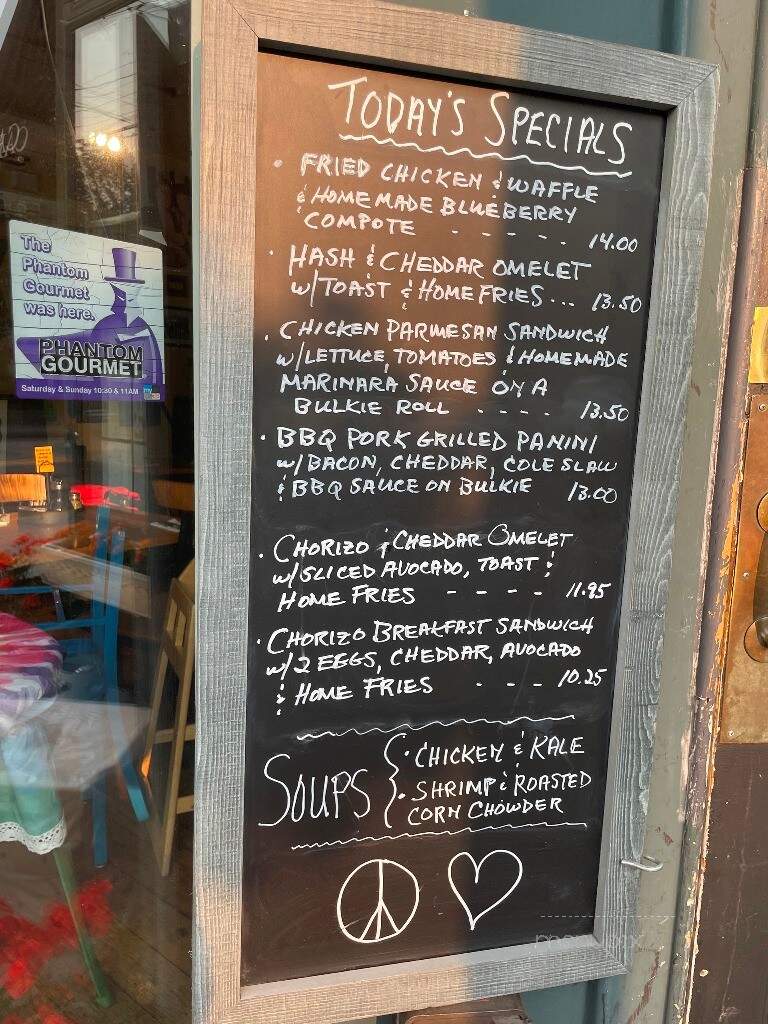 TODAY'S SPECIALS
• FRIED CHICKEN & WAFFLE
& HOMEMADE BLUEBERRY
COMPOTE - - - - - 14.00
• HASH & CHEDDAR OMELET
w/TOAST & HOME FRIES... 13.50
• CHICKEN PARMESAN SANDWICH
w/LETTUCE, TOMATOES & HOMEMADE
MARINARA SAUCE ON A
BULKIE ROLL - - - - 13.50
• BBQ PORK GRILLED PANINI
w/BACON, CHEDDAR, COLE SLAW
& BBQ SAUCE ON BULKIE 13.00
• CHORIZO & CHEDDAR OMELET
w/SLICED AVOCADO, TOAST &
HOME FRIES - - - - 11.95
• CHORIZO BREAKFAST SANDWICH
w/2 EGGS, CHEDDAR, AVOCADO
& HOME FRIES - - - 10.25
SOUPS { • CHICKEN & KALE
• SHRIMP & ROASTED
CORN CHOWDER
The
Phantom
Gourmet
was here.
PHANTOM
GOURMET
Saturday & Sunday 10:30 & 11AM